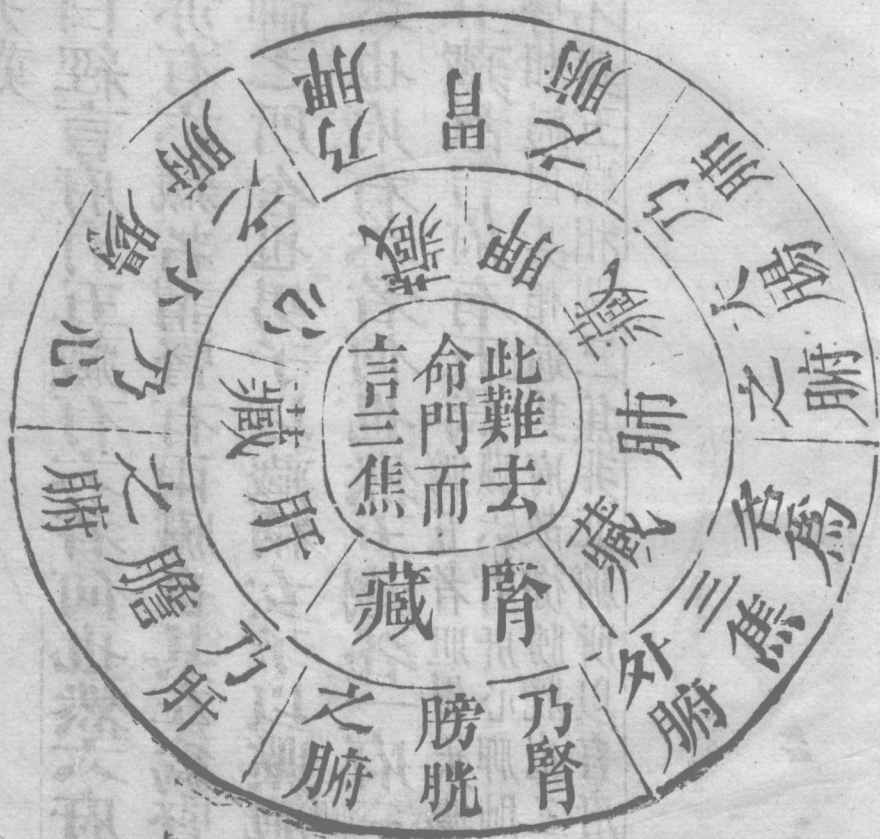 此難去
命門而
言三焦
腎藏
肝藏
心藏
脾藏
肺藏
乃腎
膀胱
之腑
乃肝
膽
之腑
乃心
小腸
之腑
乃脾
胃
之腑
乃肺
大腸
之腑
爲
三焦
外腑